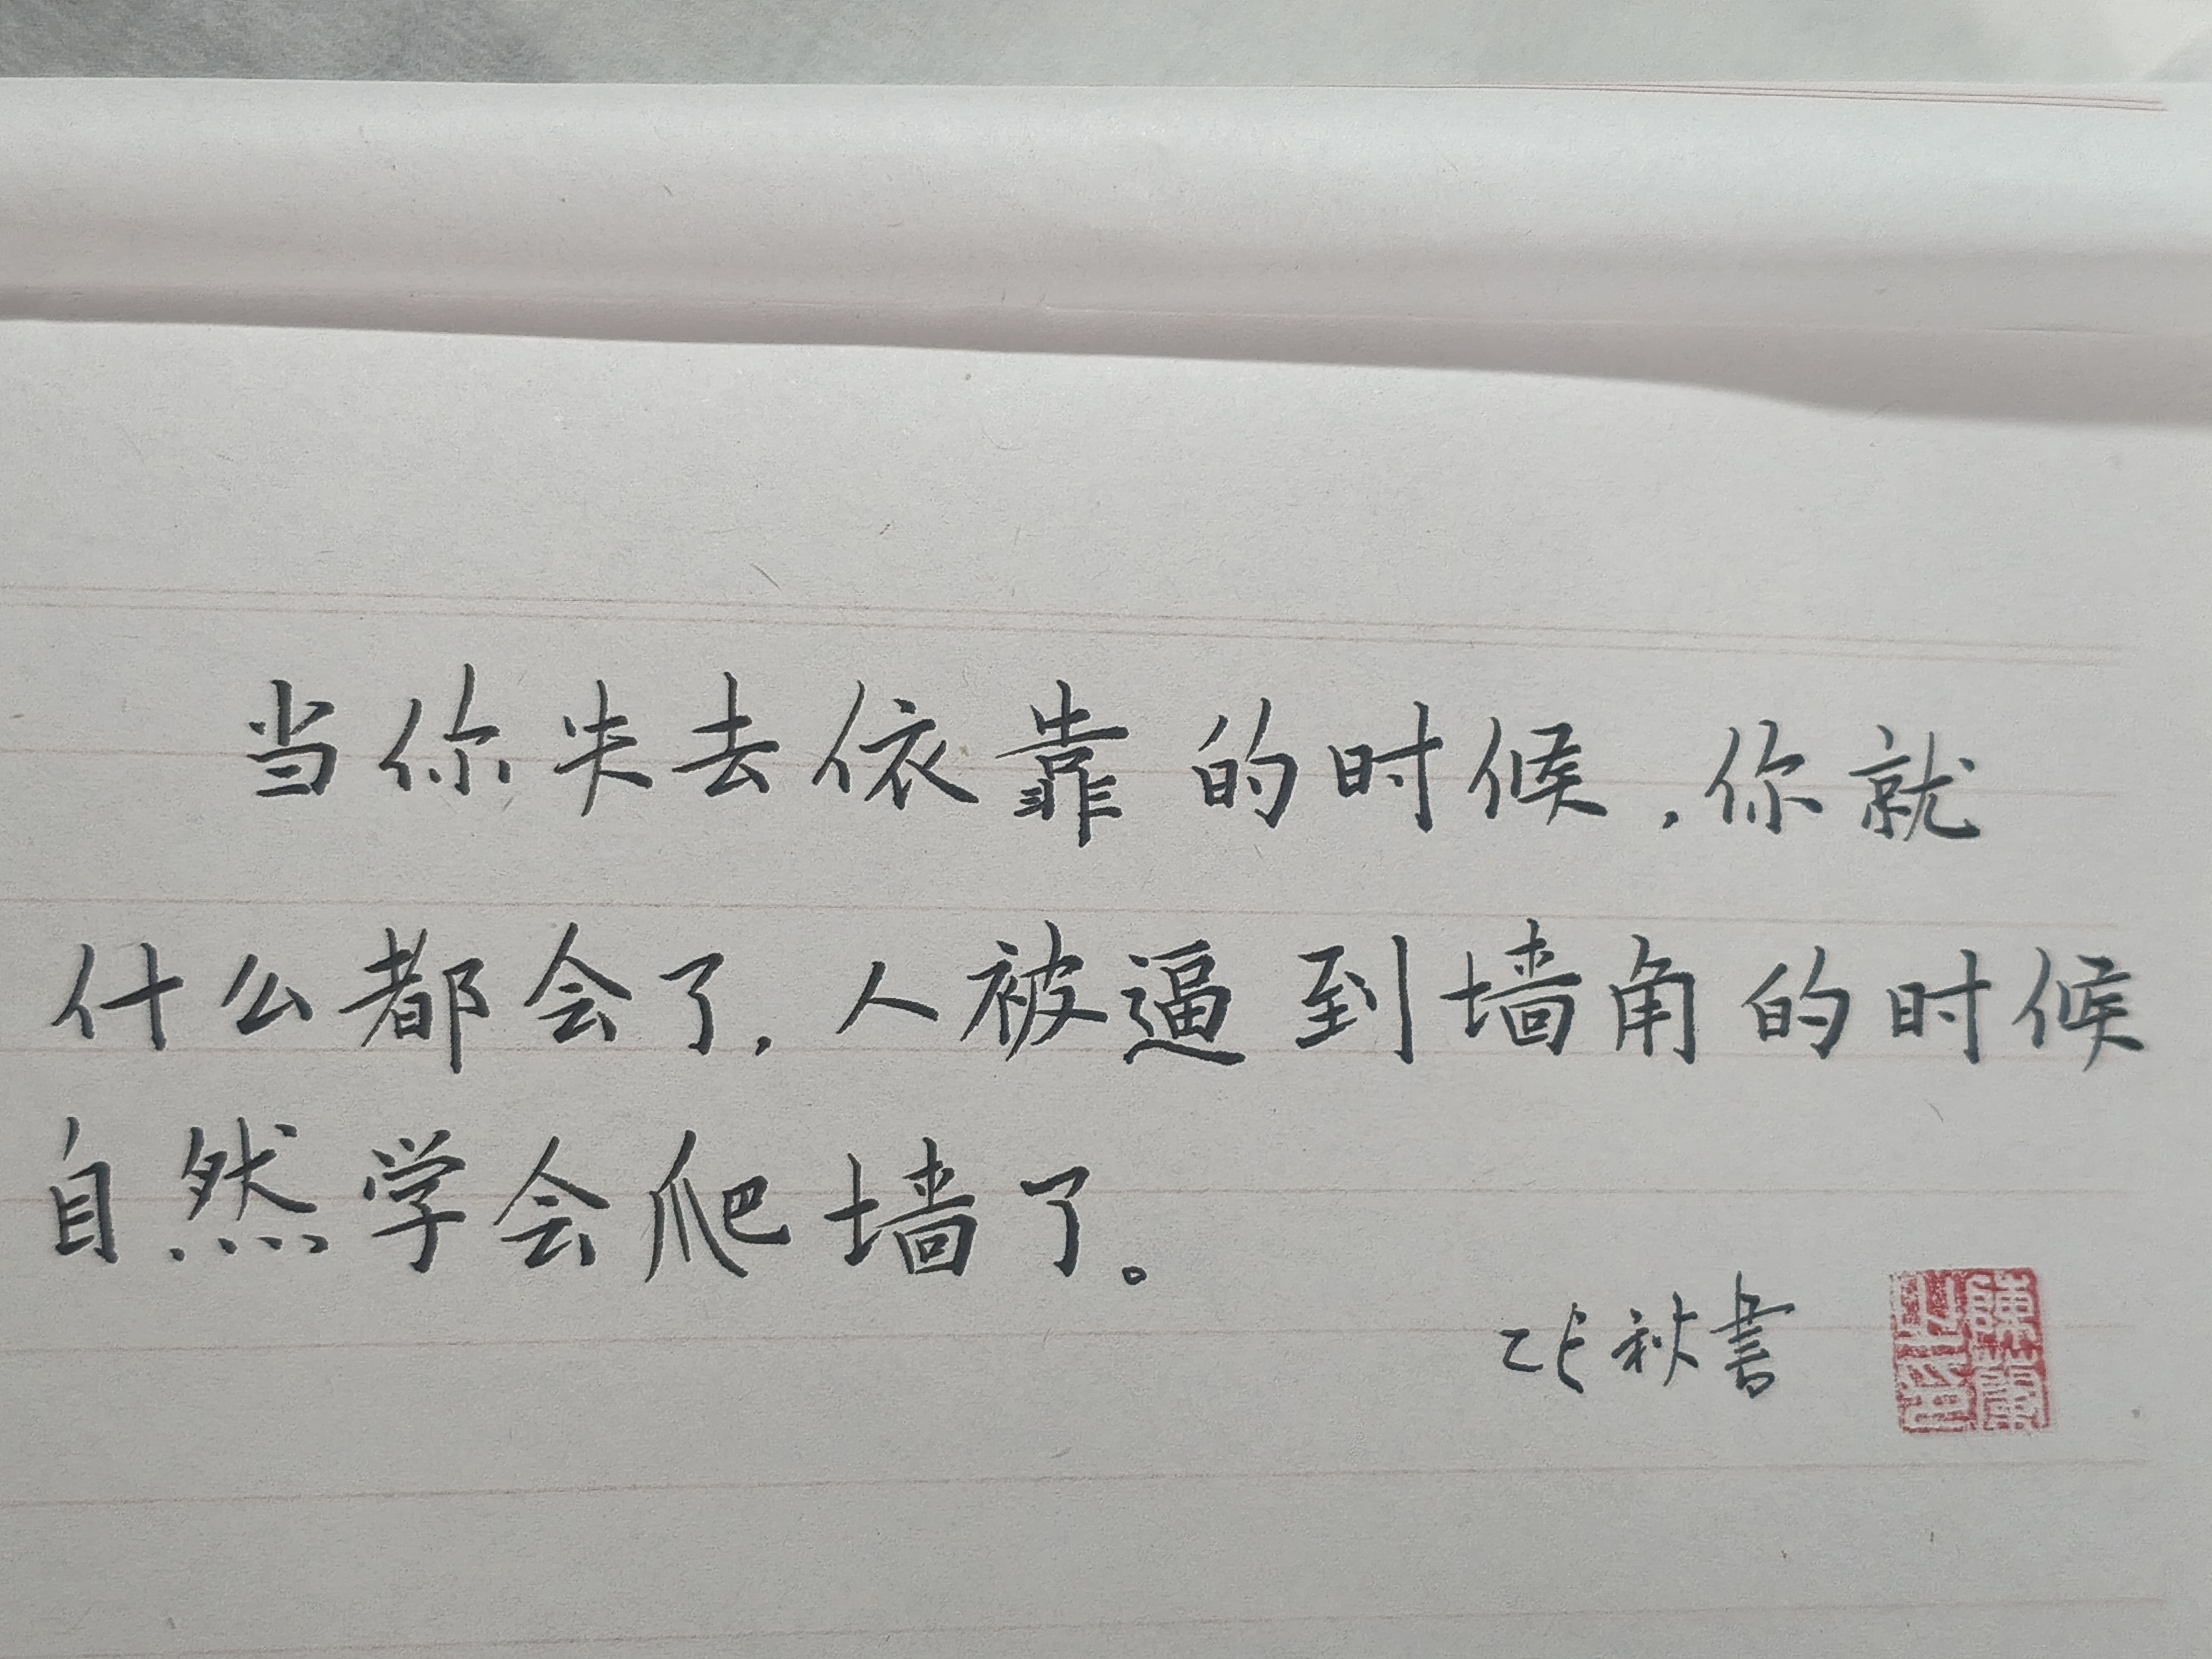 当你失去依靠的时候，你就
什么都会了，人被逼到墙角的时候
自然学会爬墙了。
乙巳秋書